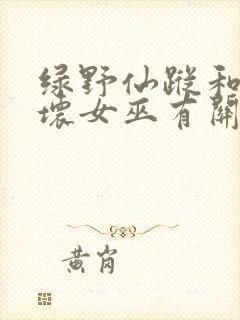 绿野仙踪和
坏女巫有關
黄岗